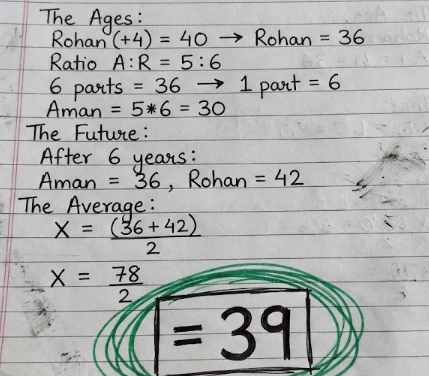 The Ages:
Rohan (+4) = 40 → Rohan = 36
Ratio A:R = 5:6
6 parts = 36 → 1 part = 6
Aman = 5*6 = 30
The Future:
After 6 years:
Aman = 36, Rohan = 42
The Average:
X = (36+42)
2
X = 78
2
= 39